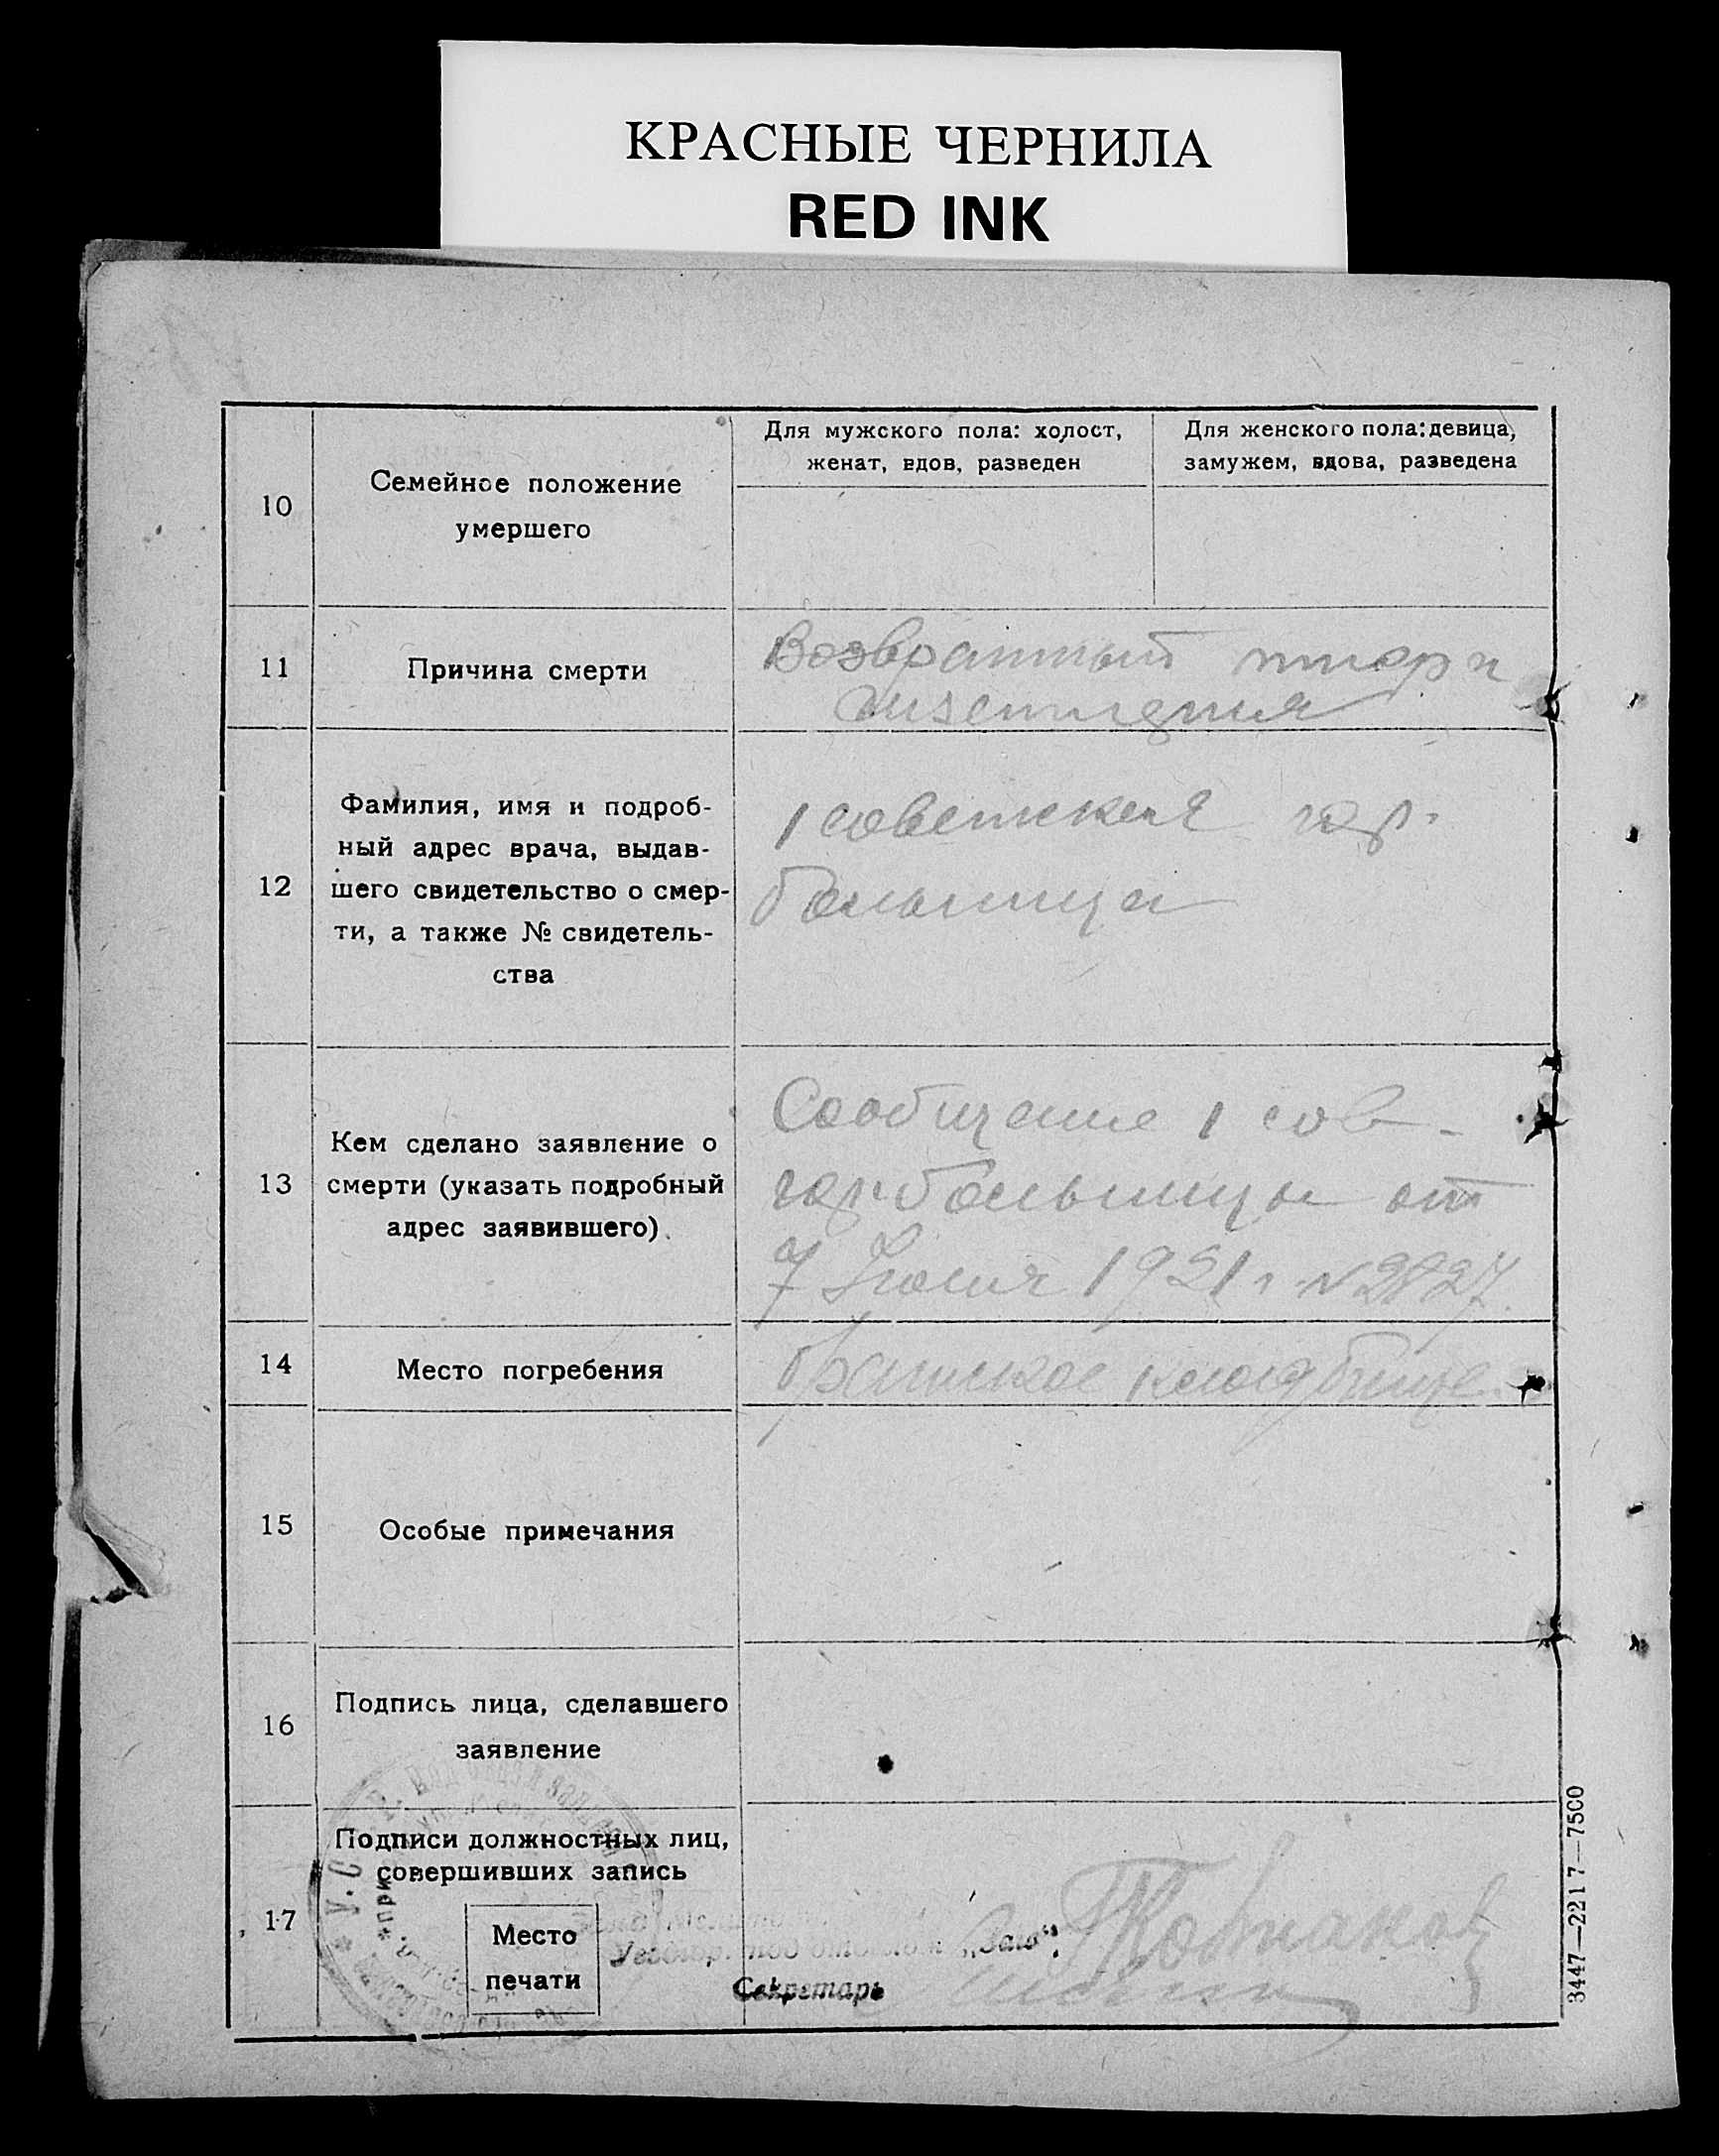 КРАСНЫЕ ЧЕРНИЛА
RED INK
10
Семейное положение
умершего
Для мужского пола: холост,
женат, вдов, разведен
Для женского пола: девица,
замужем, вдова, разведена
11
Причина смерти
Возвратный тиф и
12
Фамилия, имя и подроб-
ный адрес врача, выдав-
шего свидетельство о смер-
ти, а также № свидетель-
ства
1 советская гор.
больница
13
Кем сделано заявление о
смерти (указать подробный
адрес заявившего)
Сообщение 1 сов.
гор. больницы от
7 1921 г. N 2827.
14
Место погребения
братское кладбище.
15
Особые примечания
16
Подпись лица, сделавшего
заявление
17
Подписи должностных лиц,
совершивших запись
Место
печати
под „Загс“:
Секретарь
3447—2217—7500